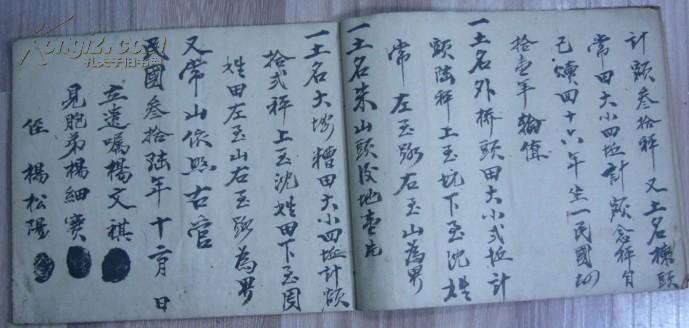 計額叁拾秤 又土名 頭
常田大小四坵計額念秤自
己 四十六年生一民國
拾壹年輪值
一土名外桥頭田大小弍坵計
額陆秤 上至坑 下至沈姓
常 左至路 右至山為界
一土名朱山頭 地壹片
一土名大 糟田大小四坵計額
拾弍秤 上至沈姓田 下至周
姓田 左至山 右至路為界
又常山依照古管
民國叁拾陆年十一月 日
立遗嘱楊文祺
見胞弟楊細寶
侄 楊松陽
Kongfz.com
孔夫子旧书网